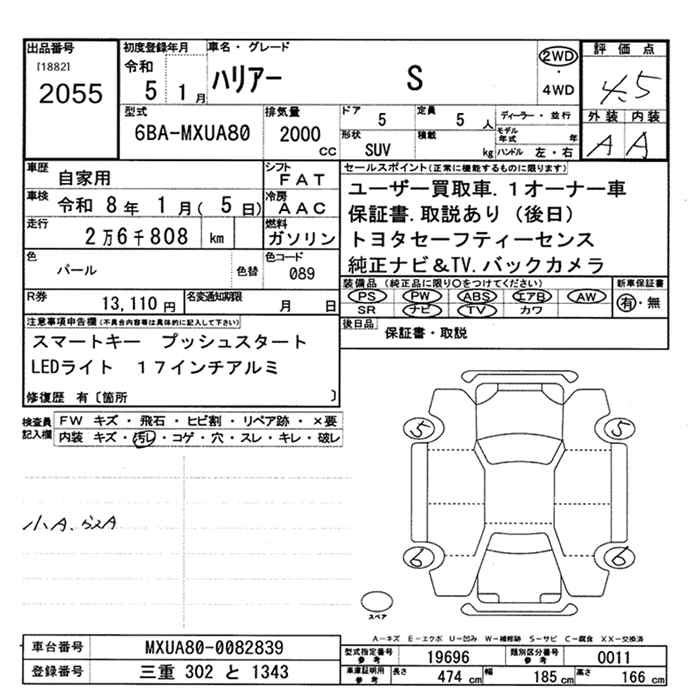 出品番号
[1882]
2055
初度登録年月
令和
5 1月
車名・グレード
ハリアー S
2WD
・
4WD
評価点
4.5
外装 内装
A A
型式
6BA-MXUA80
排気量
2000
CC
ドア
5
定員
5 人
形状
SUV
積載
kg
ディーラー・並行
モデル年式 年
ハンドル 左・右
車歴
自家用
シフト
FAT
車検
令和 8年 1月( 5日)
冷房
AAC
走行
2万6千808 km
燃料
ガソリン
色
パール
色替
色コード
089
R券
13,110円
名変通知期限
月 日
セールスポイント(正常に機能するものに限ります)
ユーザー買取車.1オーナー車
保証書.取説あり(後日)
トヨタセーフティーセンス
純正ナビ&TV.バックカメラ
装備品(純正品に限り○をつけてください)
PS PW ABS エアB AW
SR ナビ TV カワ
新車保証書
有・無
後日品
保証書・取説
注意事項申告欄(不具合内容等は具体的に記入して下さい)
スマートキー プッシュスタート
LEDライト 17インチアルミ
修復歴 有〔箇所 〕
検査員記入欄
FW キズ・飛石・ヒビ割・リペア跡・×要
内装 キズ・汚レ・コゲ・穴・スレ・キレ・破レ
5 5
6 6
スペア
A−キズ E−エクボ U−凹み W−補修跡 S−サビ C−腐食 XX−交換済
車台番号
MXUA80-0082839
登録番号
三重 302 と 1343
型式指定番号
参考
19696
類別区分番号
参考
0011
車庫証明用
参考
長さ
474 cm
幅
185 cm
高さ
166 cm